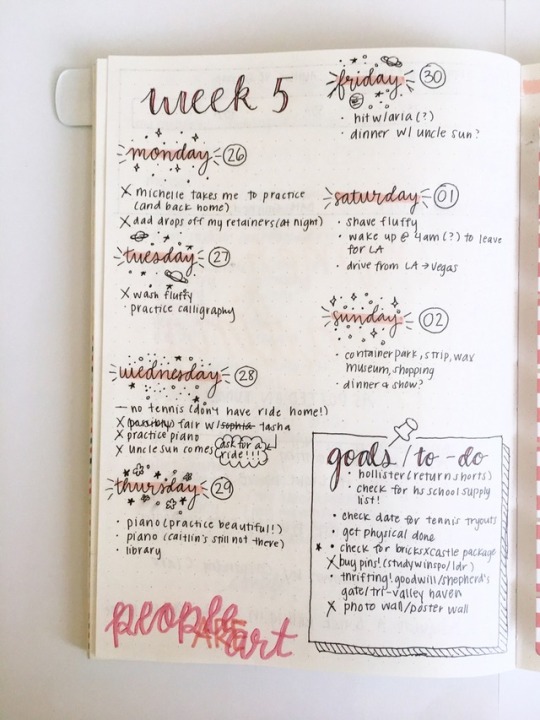 week 5
monday 26
X michelle takes me to practice
(and back home)
X dad drops off my retainers (at night)
tuesday 27
X wash fluffy
· practice calligraphy
wednesday 28
— no tennis (don't have ride home!)
X (possibly) fair w/ sophia tasha
X practice piano
X uncle sun comes
ask for a
ride!!!
thursday 29
· piano (practice beautiful!)
· piano (caitlin's still not there)
· library
people
ARE
art
friday 30
· hit w/ aria (?)
· dinner w/ uncle sun?
saturday 01
· shave fluffy
· wake up @ 4am (?) to leave
for LA
· drive from LA → vegas
sunday 02
· container park, strip, wax
museum, shopping
· dinner & show?
goals / to-do
· hollister (return shorts)
· check for hs school supply
list!
· check date for tennis tryouts
· get physical done
★ · check for bricksxcastle package
X buy pins! (studywinspo/ldr)
· thrifting! goodwill/shepherd's
gate/tri-valley haven
X photo wall/poster wall